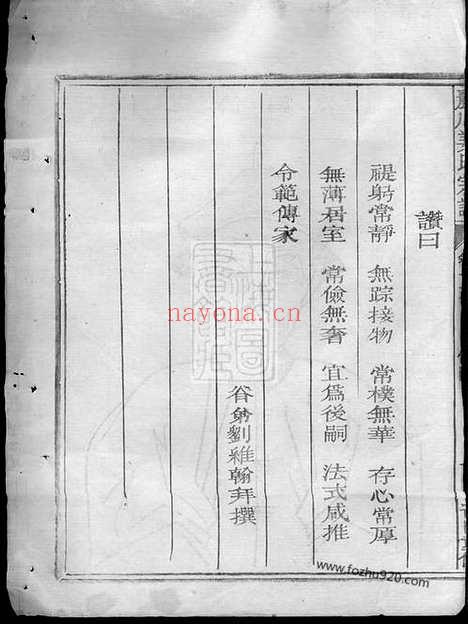 讚曰
禔躬常靜　無踪接物　常樸無華　存心常厚
無薄居室　常儉無奢　宜爲後嗣　法式咸推
令範傳家
眷弟劉維翰拜撰
nayona.cn
www.fozhu920.com